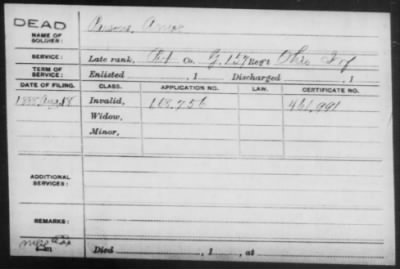 DEAD
NAME OF SOLDIER:
SERVICE: Late rank, Co. G, 127 Reg't Ohio Inf
TERM OF SERVICE: Enlisted , 1 Discharged , 1
DATE OF FILING. CLASS. APPLICATION NO. LAW. CERTIFICATE NO.
Aug Invalid, 461,991
Widow,
Minor,
ADDITIONAL SERVICES:
REMARKS:
Died , 1 , at